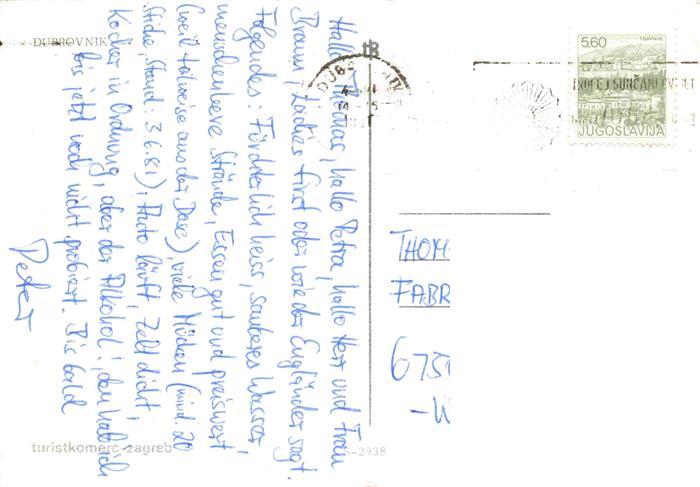 DUBROVNIK
Hallo Thomas, hallo Petra, hallo Herr und Frau
Braum, Ladies first oder wie der Engländer sagt.
Folgendes: Fürchterlich heiss, sauberes Wasser,
menschenleere Strände, Essen gut und preiswert
(weil teilweise aus der Dose), viele Mücken (mind. 20
Stiche, Stand: 3.6.81); Auto läuft, Zelt dicht,
Kocher in Ordnung, aber der Alkohol!, den hab ich
bis jetzt noch nicht probiert. Bis bald
Peter
turistkomerc-zagreb
-2938
5,60
TRAVNIK
JUGOSLAVIJA
SUNČANI CVIJET
THOM
FABR
675
-W